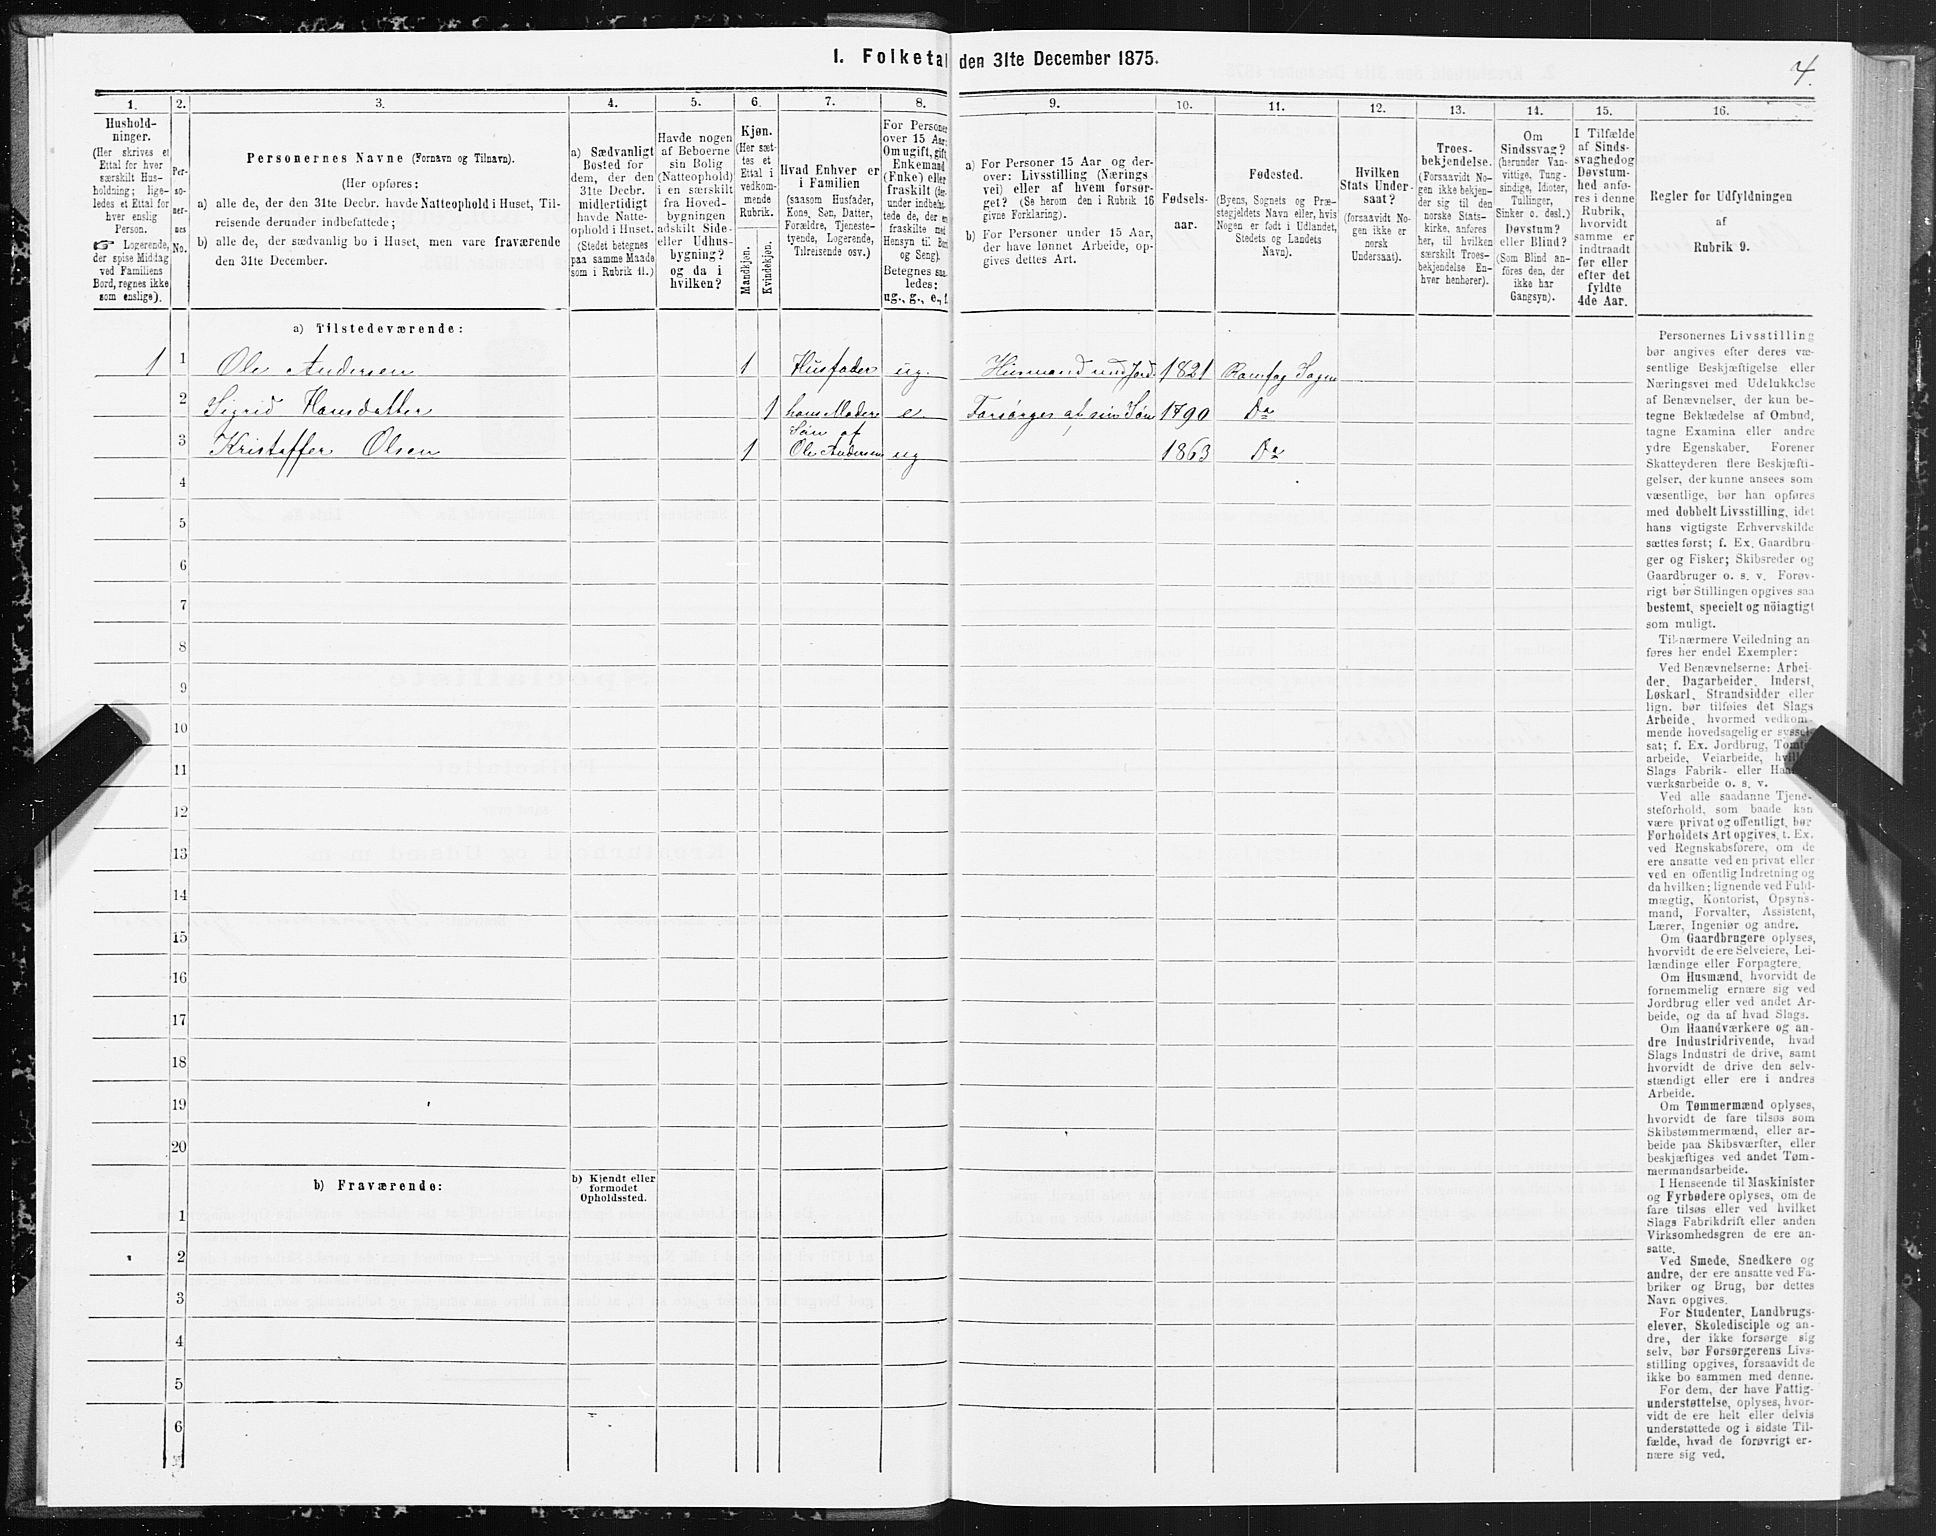 I. Folketal den 31te December 1875.
4.
1.
Hushold-
ninger.
(Her skrives et
Ettal for hver
særskilt Hus-
holdning; lige-
ledes et Ettal for
hver enslig
Person.
☞ Logerende,
der spise Middag
ved Familiens
Bord, regnes ikke
som enslige).
2.
Per-
so-
ner-
nes
No.
3.
Personernes Navne (Fornavn og Tilnavn).
(Her opføres:
a) alle de, der den 31te Decbr. havde Natteophold i Huset, Til-
reisende derunder indbefattede;
b) alle de, der sædvanlig bo i Huset, men vare fraværende
den 31te December.
4.
a) Sædvanligt
Bosted for
dem, der den
31te Decbr.
midlertidigt
havde Natte-
ophold i Huset.
(Stedet betegnes
paa samme Maade
som i Rubrik 11.)
5.
Havde nogen
af Beboerne
sin Bolig
(Natteophold)
i en særskilt
fra Hoved-
bygningen
adskilt Side-
eller Udhus-
bygning?
og da i
hvilken?
6.
Kjøn.
(Her sæt-
tes et
Ettal i
vedkom-
mende
Rubrik.
Mandkjøn.
Kvindekjøn.
7.
Hvad Enhver er
i Familien
(saasom Husfader,
Kone, Søn, Datter,
Forældre, Tjeneste-
tyende, Logerende,
Tilreisende osv.)
8.
For Personer
over 15 Aar:
Om ugift, gift,
Enkemand
(Enke) eller
fraskilt (der-
under indbefat-
tede de, der ere
fraskilte med
Hensyn til Bord
og Seng).
Betegnes saa-
ledes:
ug., g., e., f.
9.
a) For Personer 15 Aar og der-
over: Livsstilling (Nærings-
vei) eller af hvem forsør-
get? (Se herom den i Rubrik 16
givne Forklaring).
b) For Personer under 15 Aar,
der have lønnet Arbeide, op-
gives dettes Art.
10.
Fødsels-
aar.
11.
Fødested.
(Byens, Sognets og Præ-
stegjeldets Navn eller, hvis
Nogen er født i Udlandet,
Stedets og Landets
Navn).
12.
Hvilken
Stats Under-
saat?
(forsaavidt No-
gen ikke er
norsk
Undersaat).
13.
Troes-
bekjendelse.
(Forsaavidt No-
gen ikke bekjen-
der sig til den
norske Stats-
kirke, anføres
her, til hvilken
særskilt Troes-
bekjendelse En-
hver henhører).
14.
Om
Sindssvag?
(herunder Van-
vittige, Tung-
sindige, Idioter,
Tullinger,
Sinker o. desl.)
Døvstum?
eller Blind?
(Som Blind an-
føres den, der
ikke har
Gangsyn).
15.
I Tilfælde
af Sinds-
svaghed og
Døvstum-
hed anfø-
res i denne
Rubrik,
hvorvidt
samme er
indtraadt
før eller
efter det
fyldte
4de Aar.
16.
Regler for Udfyldningen
af
Rubrik 9.
a) Tilstedeværende:
1 1 Ole Andersen 1 Husfader ug. Husmand med Jord 1821 Romfog Sogn
2 Sigrid Hansdatter 1 hans Moder e. Forsørges af sin Søn 1790 Do
3 Kristoffer Olsen 1 Søn af
Ole Andersen ug 1863 Do
4
5
6
7
8
9
10
11
12
13
14
15
16
17
18
19
20
b) Fraværende:
b) Kjendt eller
formodet
Opholdssted.
1
2
3
4
5
6
Personernes Livsstilling
bør angives efter deres væ-
sentlige Beskjæftigelse eller
Næringsvei med Udelukkelse
af Benævnelser, der kun be-
tegne Beklædelse af Ombud,
tagne Examina eller andre
ydre Egenskaber. Forener
Skatteyderen flere Beskjæfti-
gelser, der kunne ansees som
væsentlige, bør han opføres
med dobbelt Livsstilling, idet
hans vigtigste Erhvervskilde
sættes først; f. Ex. Gaardbru-
ger og Fisker; Skibsreder og
Gaardbruger o. s. v. Forøv-
rigt bør Stillingen opgives saa
bestemt, specielt og nöiagtigt
som muligt.
Til nærmere Veiledning an
føres her endel Exempler:
Ved Benævnelserne: Arbei-
der, Dagarbeider, Inderst,
Løskarl, Strandsidder eller
lign. bør tilføies det Slags
Arbeide, hvormed vedkom-
mende hovedsagelig er syssel-
sat; f. Ex. Jordbrug, Tomte-
arbeide, Veiarbeide, hvilket
Slags Fabrik- eller Haand-
værksarbeide o. s. v.
Ved alle saadanne Tjene-
steforhold, som baade kan
være privat og offentligt, bør
Forholdets Art opgives, t. Ex.
ved Regnskabsførere, om de
ere ansatte ved en privat eller
ved en offentlig Indretning og
da hvilken; lignende ved Fuld-
mægtig, Kontorist, Opsyns-
mand, Forvalter, Assistent,
Lærer, Ingeniør og andre.
Om Gaardbrugere oplyses,
hvorvidt de ere Selveiere, Lei-
lændinge eller Forpagtere.
Om Husmænd, hvorvidt de
fornemmelig ernære sig ved
Jordbrug eller ved andet Ar-
beide, og da af hvad Slags.
Om Haandværkere og an-
dre Industridrivende, hvad
Slags Industri de drive, samt
hvorvidt de drive den selv-
stændigt eller ere i andres
Arbeide.
Om Tømmermænd oplyses,
hvorvidt de fare tilsøs som
Skibstømmermænd, eller ar-
beide paa Skibsværfter, eller
beskjæftiges ved andet Tøm-
mermandsarbeide.
I Henseende til Maskinister
og Fyrbødere oplyses, om de
fare tilsøs eller ved hvilket
Slags Fabrikdrift eller anden
Virksomhedsgren de ere an-
satte.
Ved Smede, Snedkere og
andre, der ere ansatte ved Fa-
briker og Brug, bør dettes
Navn opgives.
For Studenter, Landbrugs-
elever, Skoledisciple og an-
dre, der ikke forsørge sig
selv, bør Forsørgerens Livs-
stilling opgives, forsaavidt de
ikke bo sammen med denne.
For dem, der have Fattig-
understøttelse, oplyses, hvor-
vidt de ere helt eller delvis
understøttede og i sidste Til-
fælde, hvad de forøvrigt er-
nære sig ved.